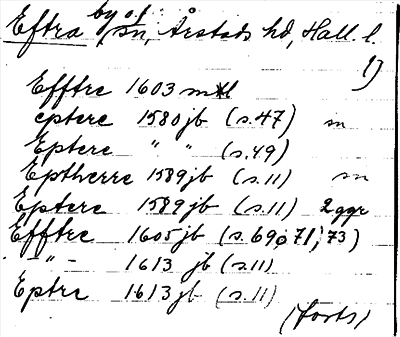 Eftra by o. f. /sn, Årstads hd, Hall. l.
1)
Efftre 1603 mtl
eptere 1580 jb (s. 47) sn
Eptere " " (s. 49)
Eptherre 1589 jb (s. 11) sn
Eptere 1589 jb (s. 11) 2 ggr
Efftre 1605 jb (s. 69 o 71, 73)
- " - 1613 jb (s. 11)
Eptre 1613 jb (s. 11)
(forts)